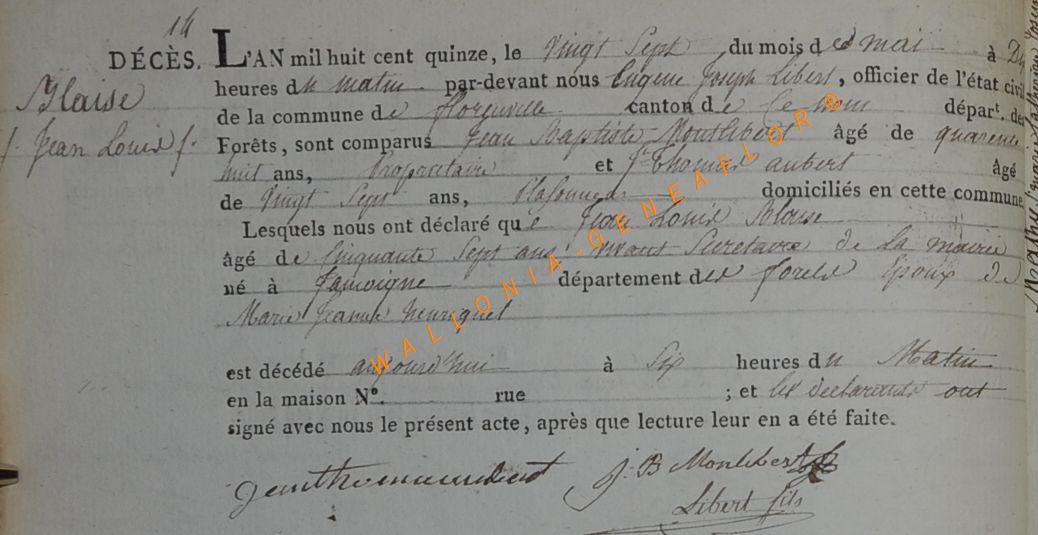 14
DÉCÈS. L'AN mil huit cent quinze, le Vingt Sept du mois de mai à Dix
Blaise
Jean Louis
heures du matin par-devant nous Eugene Joseph Libert, officier de l'état civil
de la commune de florenville canton de Ce nom départ. de
Forêts, sont comparus Jean Baptiste Montlibert âgé de quarente
huit ans, Propriétaire et Jn Thomas aubert âgé
de Vingt Sept ans, domiciliés en cette commune
Lesquels nous ont déclaré que Jean Louis Blaise
âgé de Cinquante Sept ans vivant Secretaire de La mairie
né à Jamoigne département des forets Epoux de
Marie Jeanne henriquet
est décédé aujourd'hui à Six heures du Matin
en la maison No. rue ; et les declarants ont
signé avec nous le présent acte, après que lecture leur en a été faite.
J. B Monlibert
Libert fils
WALLONIA-GENEAFLOR ®